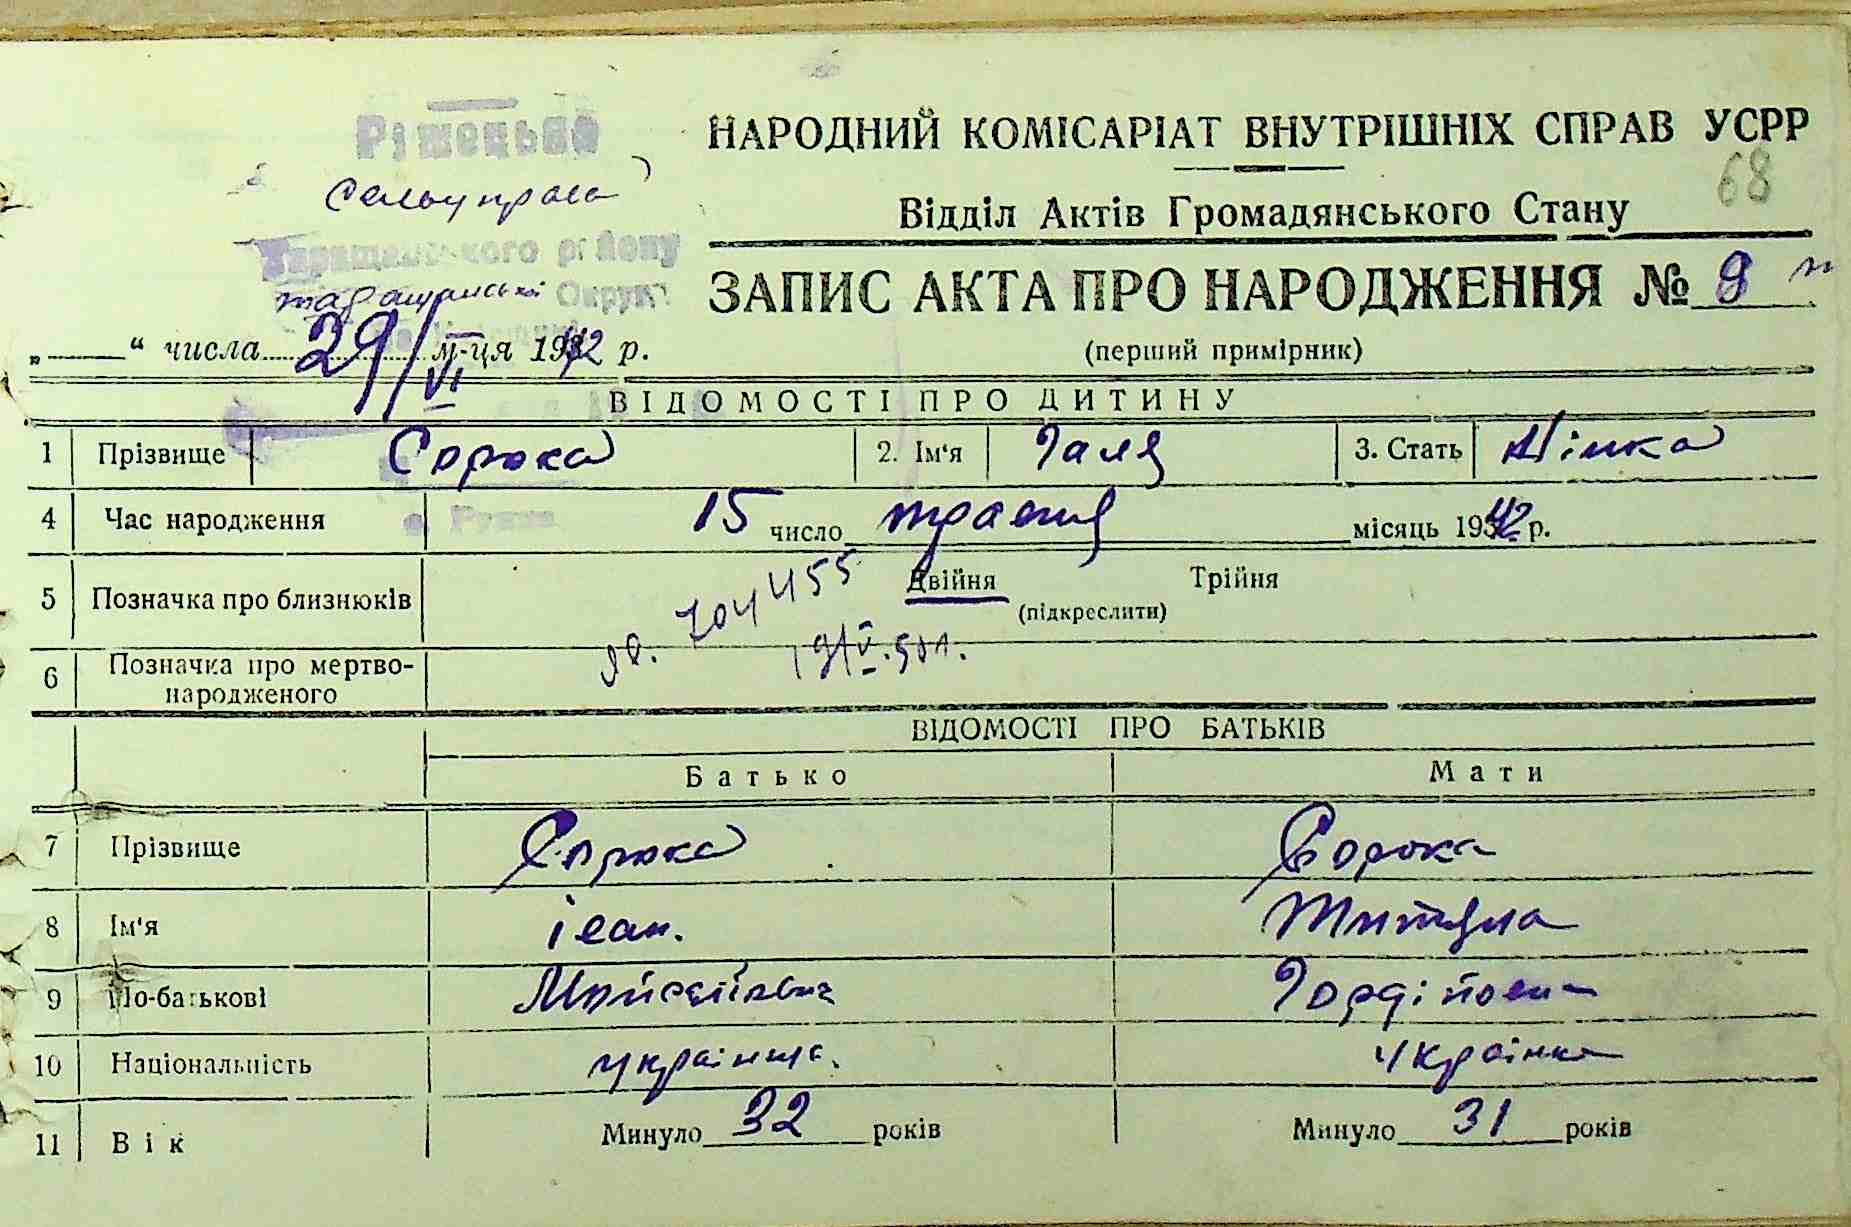 Ріжецька
НАРОДНИЙ КОМІСАРІАТ ВНУТРІШНІХ СПРАВ УСРР
68
Сельуправа
Відділ Актів Громадянського Стану
Таращанського району
Округ
ЗАПИС АКТА ПРО НАРОДЖЕННЯ № 9
„ “ числа 29/VI м-ця 1942 р.
(перший примірник)
ВІДОМОСТІ ПРО ДИТИНУ
1 Прізвище Сорока 2. Ім‘я Галя 3. Стать жінка
4 Час народження 15 число травня місяць 1942 р.
5 Позначка про близнюків Двійня Трійня
(підкреслити)
704455
6 Позначка про мертво-
народженого
ВІДОМОСТІ ПРО БАТЬКІВ
Батько Мати
7 Прізвище Сорока Сорока
8 Ім‘я іван.
9 По-батькові Мойсейович Гордіївна
10 Національність українец. українка
11 Вік Минуло 32 років Минуло 31 років